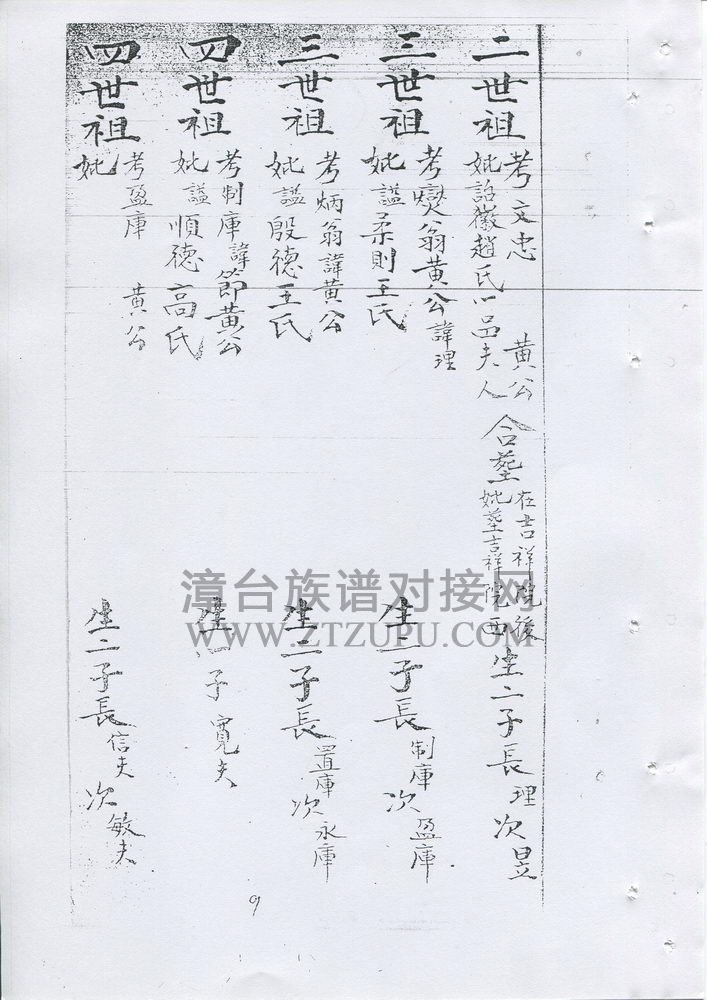 二世祖 考文忠 黄公
妣諡徽趙氏一品夫人 合塟 在吉祥院後
妣塟吉祥院西 生二子長理 次昱
三世祖 考爕翁黄公諱理
妣諡柔則王氏 生二子長制庫 次盈庫
三世祖 考炳翁諱黄公
妣諡殷德王氏 生二子長置庫 次永庫
四世祖 考制庫諱節黄公
妣諡順德高氏 生一子寛夫
四世祖 考盈庫 黄公
妣 生二子長信夫 次敏夫
9
漳台族谱对接网
WWW.ZTZUPU.COM